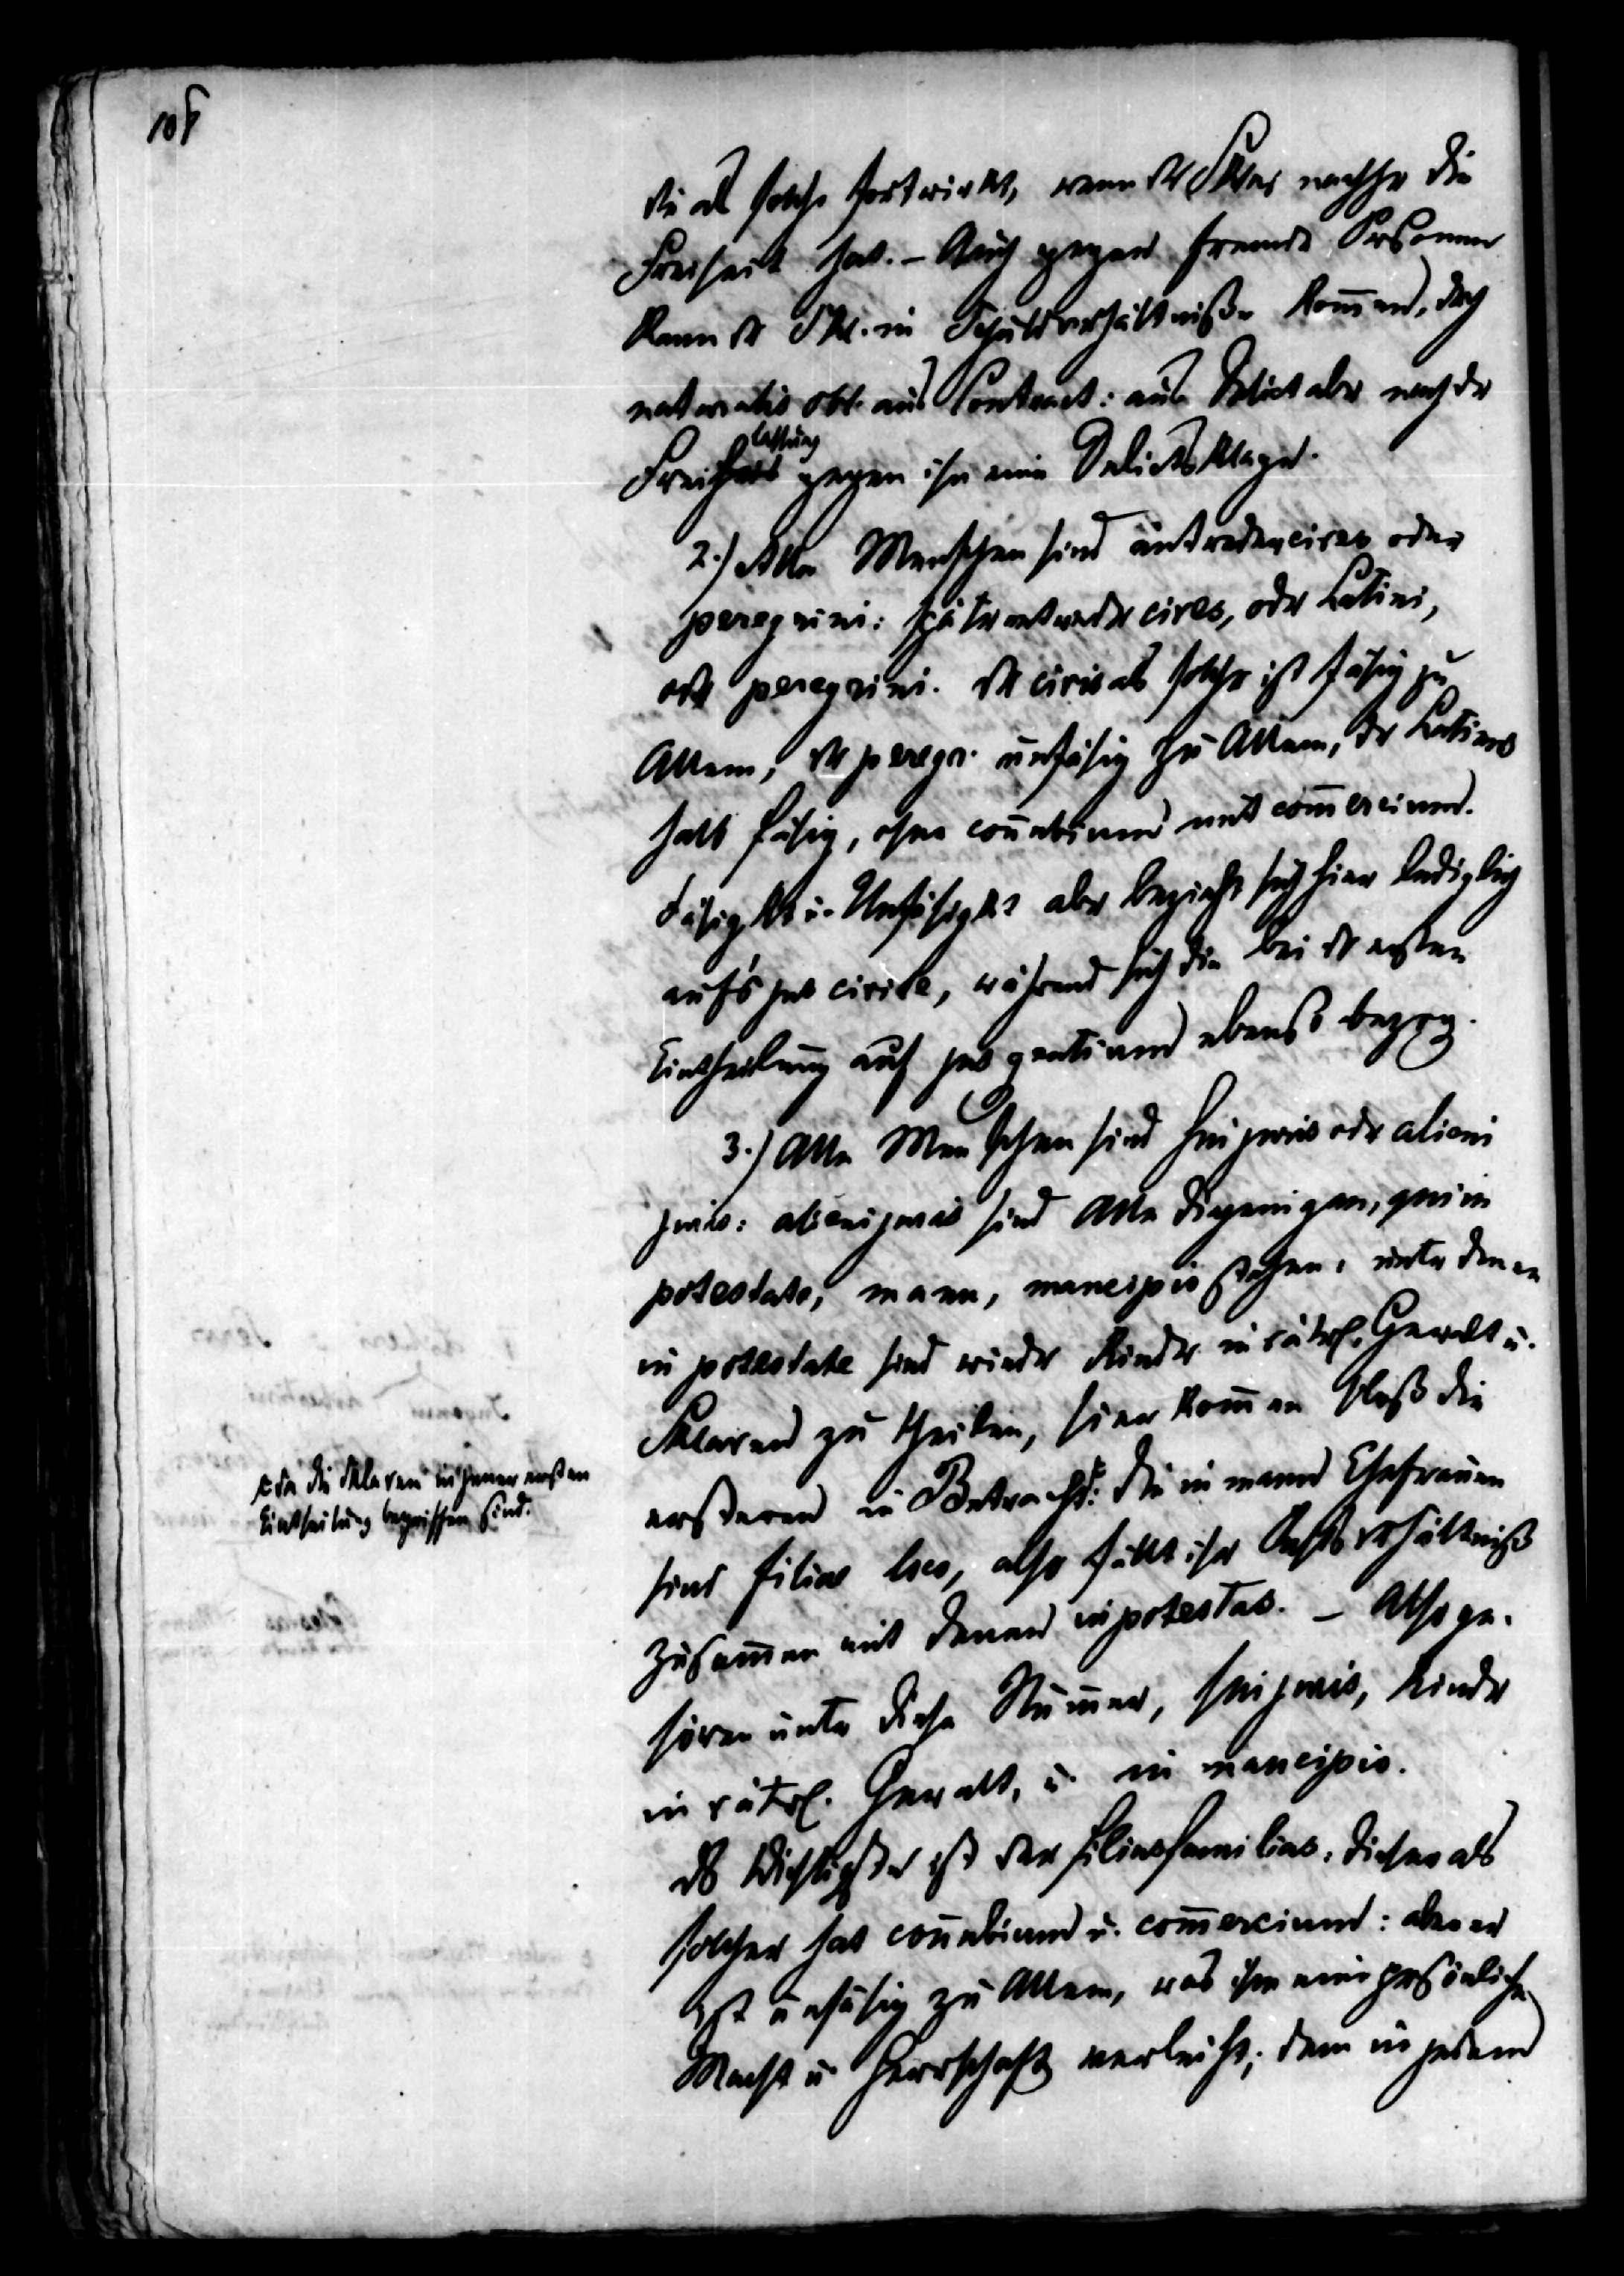 108
die als solche fortwirkt, wenn der Sklav nachher die
Freiheit hat. – Auch gegen fremde Personen
kann der Skl. in Schuldverhältniße kom̅en, doch
naturalis obl. aus Contract: aus Delict aber nach der
Freilassung gegen ihn eine Delictsklage.
2.) Alle Menschen sind entweder cives oder
peregrini: später entweder cives, oder Latini,
oder peregrini. Der civis als solcher ist fähig zu
Allem, der peregr. unfähig zu Allem, der Latinus
halb fähig, ohne conubium mit com̅ercium.
Fähigkt u. Unfähigkt aber bezieht sich hier lediglich
auf's jus civile, während sich die bei der ersten
Eintheilung auf jus gentium ebenso bezog.
3.) Alle Menschen sind sui juris oder alieni
juris: alieni juris sind Alle diejenigen, qui in
potestate, manu, mancipio stehen: unter denen
in potestate sind wieder Kinder in väterl. Gewalt u.
Sklaven zu theilen, hier kom̅en bloß die
ersteren in Betracht: die in manu Ehefrauen
sind filiae loco, also fällt ihr Rechtsverhältniß
zusam̅en mit denen in potestas. – Also ge-
hören unter diese Num̅er, sui juris, Kinder
in väterl. Gewalt, u. in mancipio.
da die Sklaven in jener ersten
Eintheilung begriffen sind.
Das Wichtigste ist der filiusfamilias: dieser als
solcher hat conubium u. com̅ercium: aber er
ist unfähig zu Allem, was ihm eine persönliche
Macht u. Herrschaft verleiht; denn in jedem